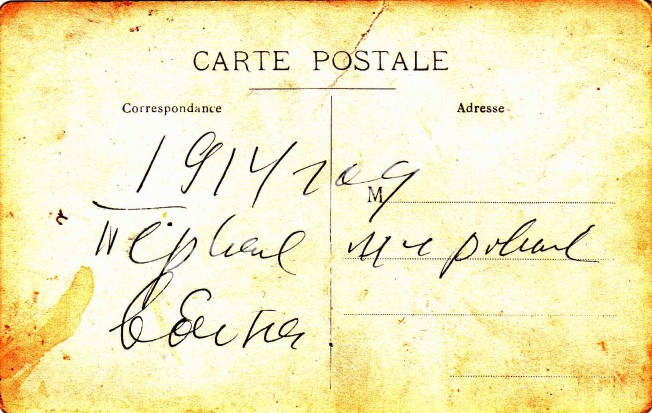 CARTE POSTALE
Correspondance
Adresse
1914 год
М
Первая мировая
война